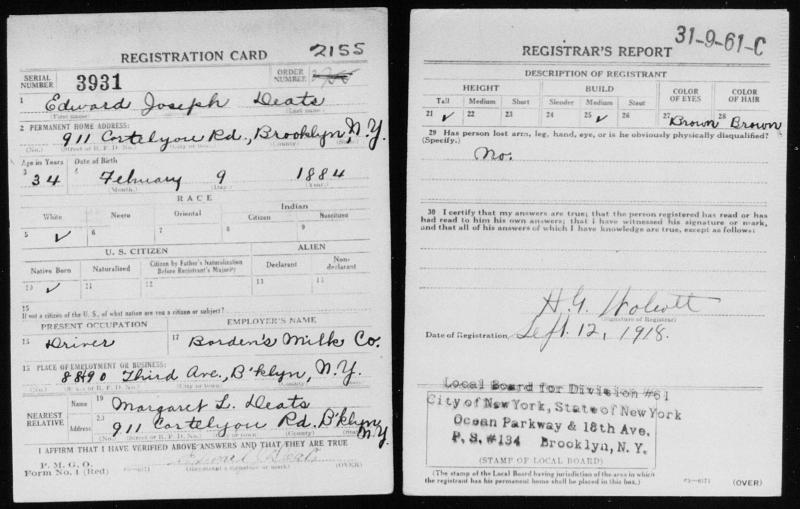 REGISTRATION CARD 2155
SERIAL NUMBER 3931 ORDER NUMBER
1 Edward Joseph Deats
(First name) (Last name)
2 PERMANENT HOME ADDRESS:
911 Cortelyou Rd., Brooklyn, N.Y.
(No.) (Street or R. F. D. No.) (City or town) (County) (State)
Age in Years Date of Birth
3 34 4 February 9 1884
(Month.) (Day.) (Year.)
RACE
White Negro Oriental Indian
Citizen Noncitizen
5 ✓ 6 7 8 9
U. S. CITIZEN ALIEN
Native Born Naturalized Citizen by Father's Naturalization Before Registrant's Majority Declarant Non-declarant
10 ✓ 11 12 13 14
15
If not a citizen of the U. S., of what nation are you a citizen or subject?
PRESENT OCCUPATION EMPLOYER'S NAME
16 Driver 17 Borden's Milk Co.
18 PLACE OF EMPLOYMENT OR BUSINESS:
8890 Third Ave., B'klyn, N.Y.
(No.) (Street or R. F. D. No.) (City or town) (County) (State)
NEAREST RELATIVE Name 19 Margaret L. Deats
Address 20 911 Cortelyou Rd. B'klyn, N.Y.
(No.) (Street or R. F. D. No.) (City or town) (County) (State)
I AFFIRM THAT I HAVE VERIFIED ABOVE ANSWERS AND THAT THEY ARE TRUE
P. M. G. O.
Form No. 1 (Red) Edward J Deats
(Registrant's signature or mark) (OVER)
31-9-61-C
REGISTRAR'S REPORT
DESCRIPTION OF REGISTRANT
HEIGHT BUILD COLOR OF EYES COLOR OF HAIR
Tall Medium Short Slender Medium Stout
21 ✓ 22 23 24 25 ✓ 26 27 Brown 28 Brown
29 Has person lost arm, leg, hand, eye, or is he obviously physically disqualified?
(Specify.)
No.
30 I certify that my answers are true; that the person registered has read or has
had read to him his own answers; that I have witnessed his signature or mark,
and that all of his answers of which I have knowledge are true, except as follows:
H. G. Wolcott
(Signature of Registrar)
Date of Registration Sept. 12, 1918.
Local Board for Division #61
City of New York, State of New York
Ocean Parkway & 18th Ave.
P. S. #134 Brooklyn, N. Y.
(STAMP OF LOCAL BOARD)
(The stamp of the Local Board having jurisdiction of the area in which
the registrant has his permanent home shall be placed in this box.) (OVER)